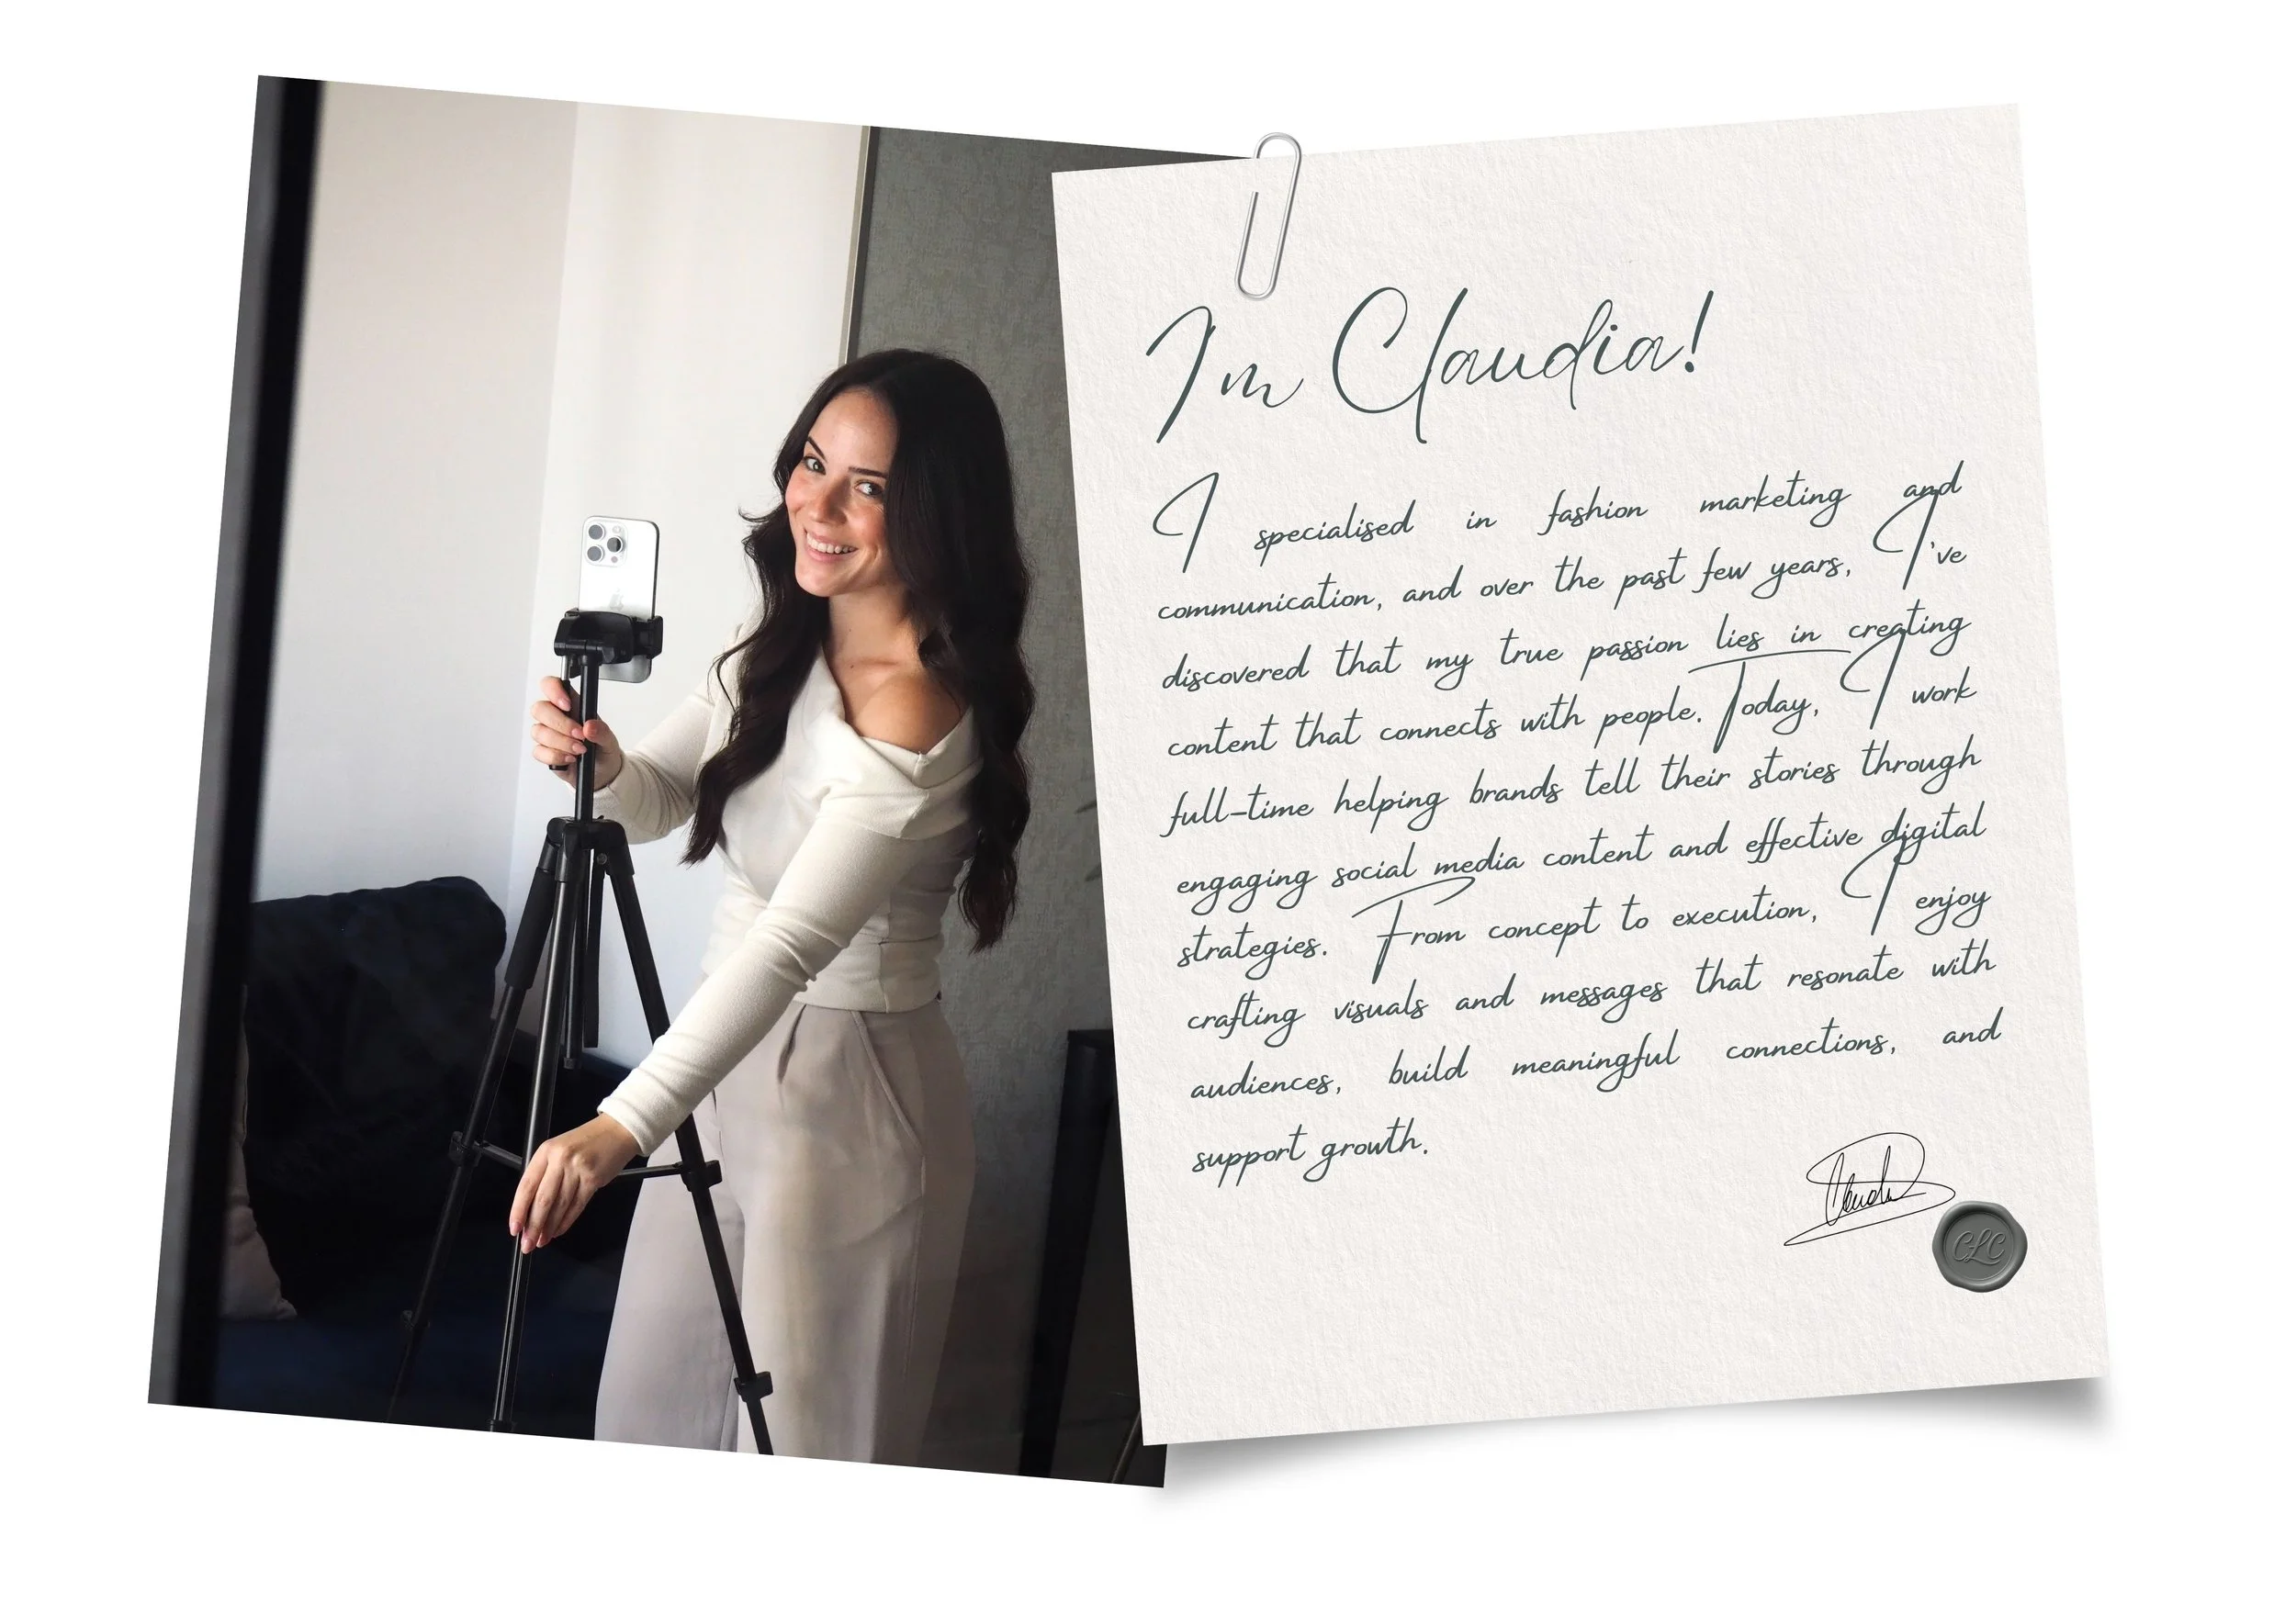 Im Claudia!
I specialised in fashion marketing and
communication, and over the past few years, I've
discovered that my true passion lies in creating
content that connects with people. Today, I work
full-time helping brands tell their stories through
engaging social media content and effective digital
strategies. From concept to execution, I enjoy
crafting visuals and messages that resonate with
audiences, build meaningful connections, and
support growth.
Claudia
CLC